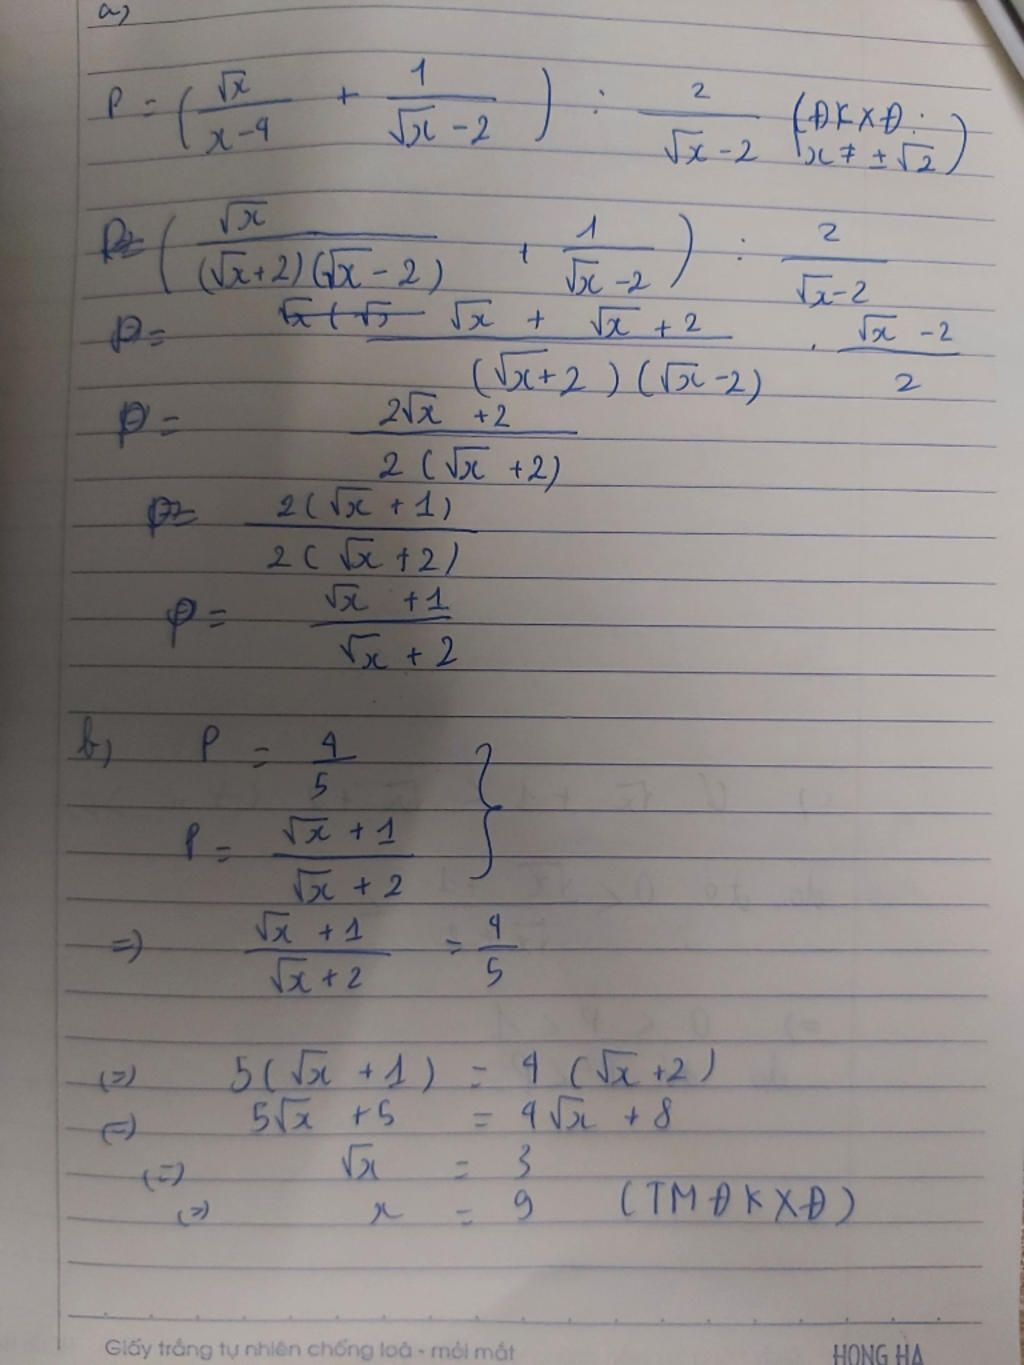 a)
P = (√x/(x-4) + 1/(√x-2)) : 2/(√x-2) (ĐKXĐ: x ≠ ±√2)
P= (√x/((√x+2)(√x-2)) + 1/(√x-2)) : 2/(√x-2)
P= (√x + √x + 2)/((√x+2)(√x-2)) . (√x-2)/2
P= (2√x + 2)/(2(√x+2))
P= 2(√x+1)/(2(√x+2))
P= (√x+1)/(√x+2)
b) P = 4/5
P = (√x+1)/(√x+2) }
=> (√x+1)/(√x+2) = 4/5
(=) 5(√x+1) = 4(√x+2)
(=) 5√x + 5 = 4√x + 8
(=) √x = 3
(=) x = 9 (TMĐKXĐ)
Giấy trắng tự nhiên chống loá - mỏi mắt HONG HA